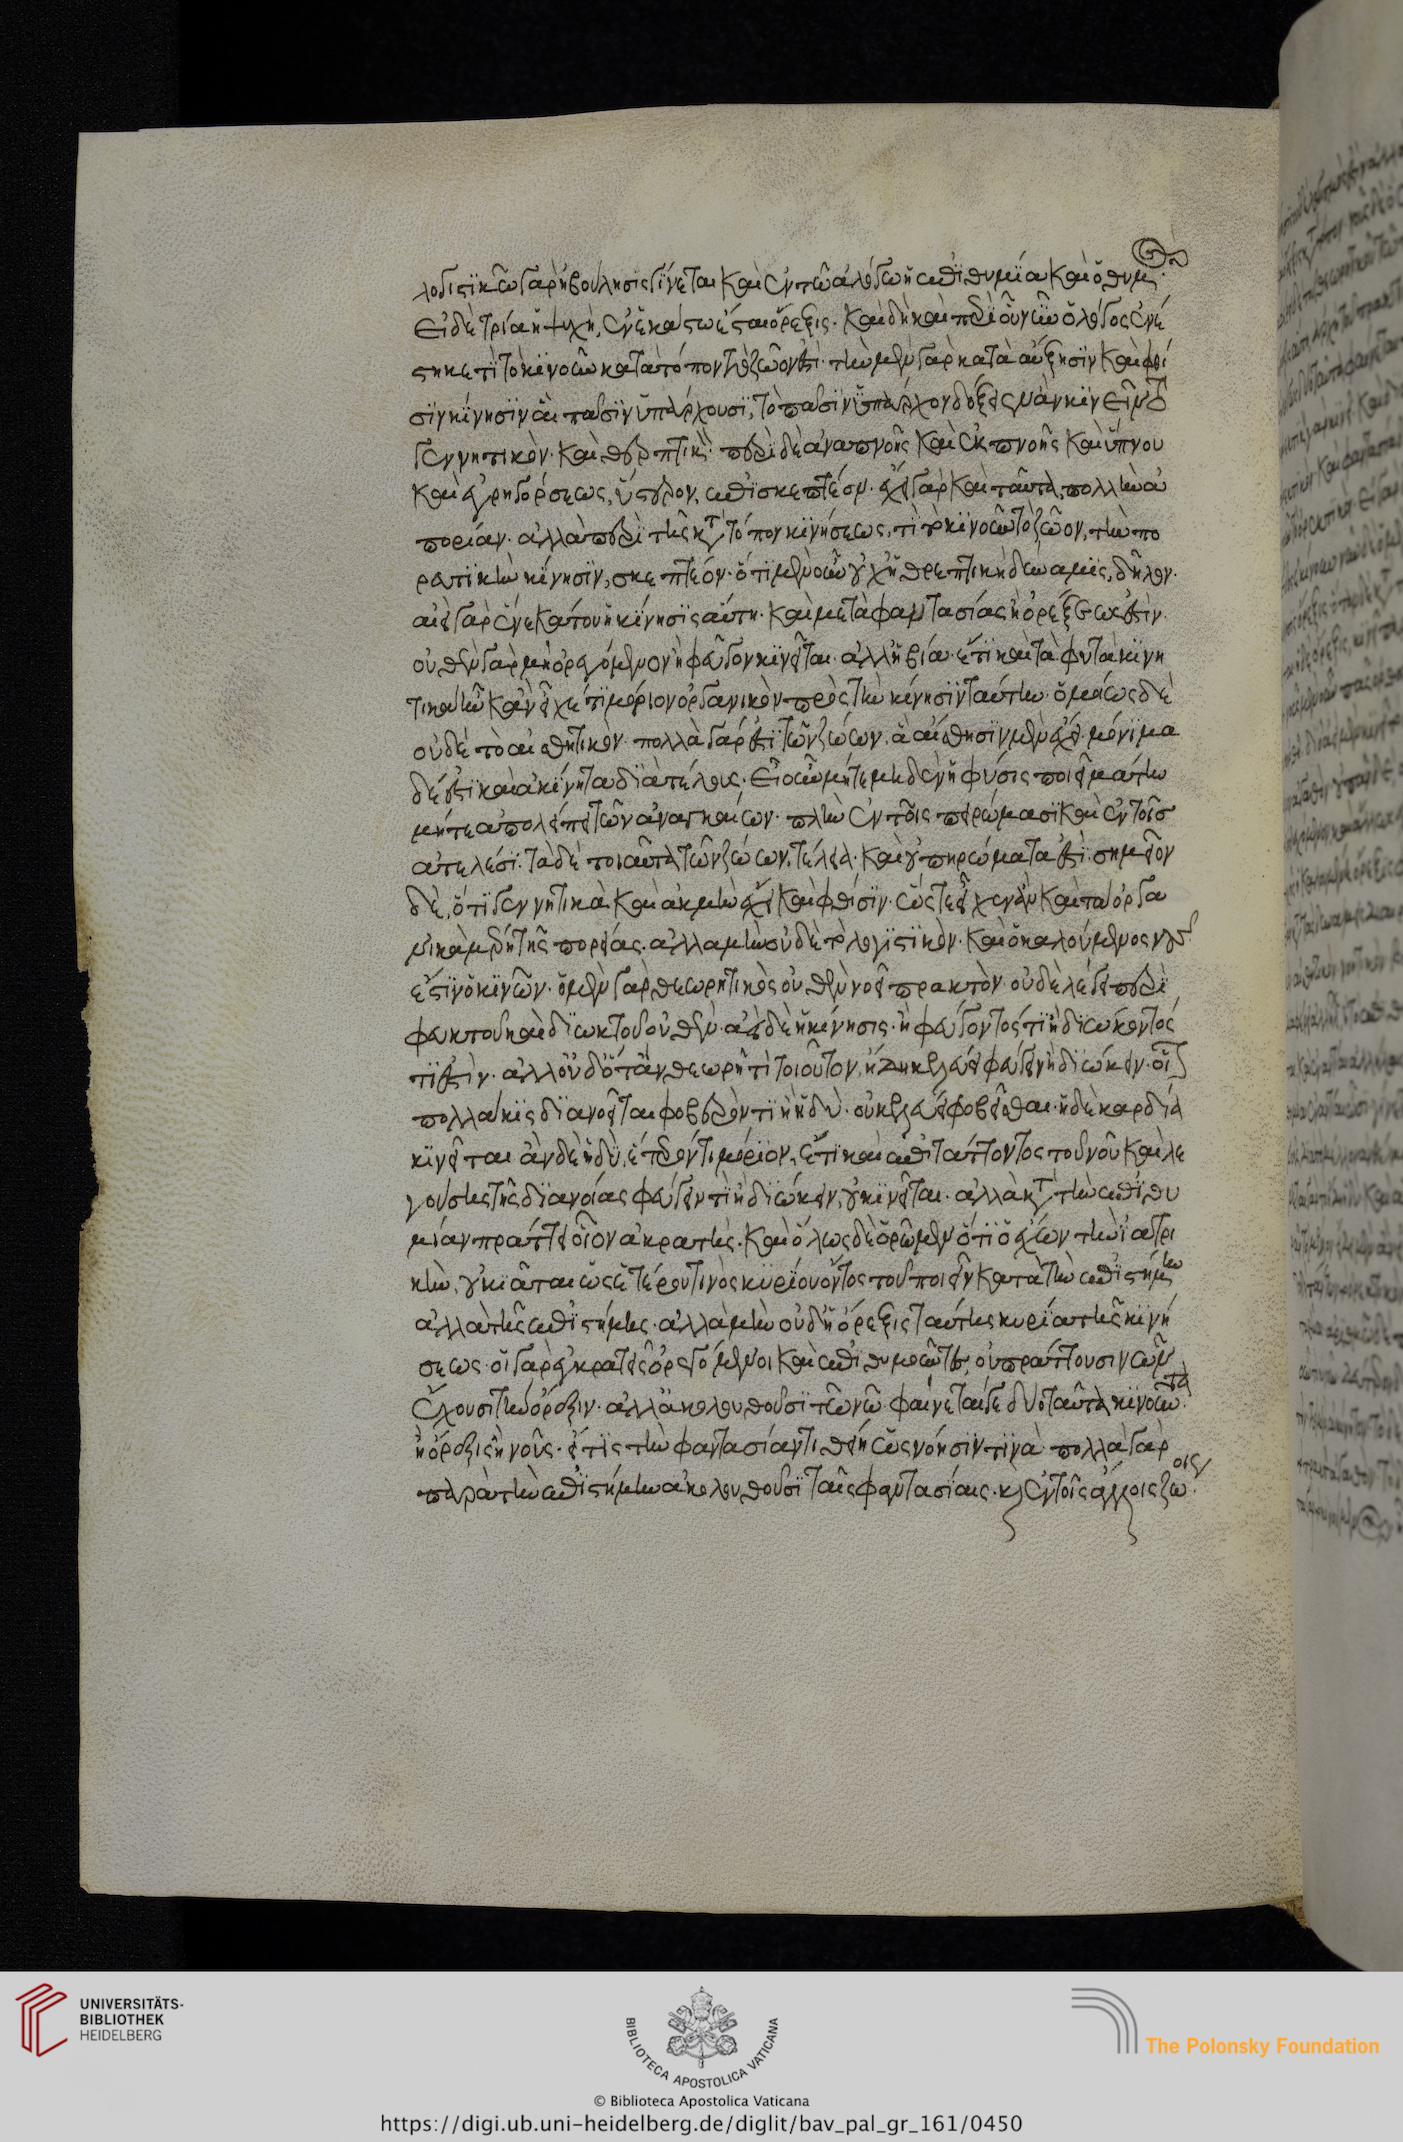 λογιστικῶ γὰρ ἡ βούλησις γίνεται καὶ ἐν τῶ ἀλόγω ἡ ἐπιθυμία καὶ ὁ θυμός.
εἰ δὲ τρία ἡ ψυχὴ, ἐν ἑκάστω ἔσται ὄρεξις. καὶ δὴ καὶ περὶ οὗ νῦν ὁ λόγος ἐνέ
στηκε τί τὸ κινοῦν κατὰ τόπον τὸ ζῶον ἐστί. τὴν μὲν γὰρ κατὰ αὔξησιν καὶ φθί
σιν κίνησιν ἅπασιν ὑπάρχουσι, τὸ πᾶσιν ὑπάρχον δόξειεν ἂν κινεῖν τὸ
γεννητικὸν καὶ θρεπτικόν. περὶ δὲ ἀναπνοῆς καὶ ἐκπνοῆς καὶ ὕπνου
καὶ ἐγρηγόρσεως, ὕστερον ἐπισκεπτέον. ἔχει γὰρ καὶ ταῦτα πολλὴν ἀ
πορίαν. ἀλλὰ περὶ τῆς κατὰ τόπον κινήσεως, τί τὸ κινοῦν τὸ ζῶον, τὴν πο
ρευτικὴν κίνησιν, σκεπτέον. ὅτι μὲν οὖν οὐχ ἡ θρεπτικὴ δύναμις, δῆλον.
αἰεὶ γὰρ ἕνεκά του ἡ κίνησις αὕτη. καὶ μετὰ φαντασίας ἢ ὀρέξεως ἐστίν.
οὐθὲν γὰρ μὴ ὀρεγόμενον ἢ φεῦγον κινεῖται. ἀλλ' ἢ βία. ἔτι καὶ τὰ φυτὰ κινη
τικὰ ἦν κἂν εἶχέ τι μόριον ὀργανικὸν πρὸς τὴν κίνησιν ταύτην. ὁμοίως δὲ
οὐδὲ τὸ αἰσθητικόν. πολλὰ γάρ ἐστι τῶν ζώων, ἃ αἴσθησιν μὲν ἔχει. μόνιμα
δέ ἐστι καὶ ἀκίνητα διὰ τέλους. εἰ οὖν μήτε μηδὲν ἡ φύσις ποιεῖ μάτην
μήτε ἀπολείπει τῶν ἀναγκαίων. πλὴν ἐν τοῖς πηρώμασι καὶ ἐν τοῖς
ἀτελέσι. τὰ δὲ τοιαῦτα τῶν ζώων, τέλεια. καὶ οὐ πηρώματά ἐστι. σημεῖον
δὲ, ὅτι γεννητικὰ καὶ ἀκμὴν ἔχει καὶ φθίσιν. ὥστε εἶχεν ἂν καὶ τὰ ὀργα
νικὰ μέρη τῆς πορείας. ἀλλὰ μὴν οὐδὲ τὸ λογιστικὸν. καὶ ὁ καλούμενος νοῦς
ἐστιν ὁ κινῶν. ὁ μὲν γὰρ θεωρητικὸς οὐθὲν νοεῖ πρακτόν. οὐδὲ λέγει περὶ
φευκτοῦ καὶ διωκτοῦ οὐθέν. ἀεὶ δὲ ἡ κίνησις. ἢ φεύγοντός τι ἢ διώκοντός
τί ἐστιν. ἀλλ' οὐδ' ὅταν θεωρῆ τι τοιοῦτον, ἤδη κελεύει φεύγειν ἢ διώκειν. οἷον
πολλάκις διανοεῖται φοβερόν τι ἢ ἡδύ. οὐ κελεύει φοβεῖσθαι. ἡ δὲ καρδία
κινεῖται ἂν δὲ ἡδύ, ἕτερόν τι μόριον. ἔτι καὶ ἐπιτάττοντος τοῦ νοῦ καὶ λε
γούσης τῆς διανοίας φεύγειν τι ἢ διώκειν, οὐ κινεῖται. ἀλλὰ κατὰ τὴν ἐπιθυ
μίαν πράττει οἷον ἀκρατής. καὶ ὅλως δὲ ὁρῶμεν ὅτι ὁ ἔχων τὴν ἰατρι
κὴν, οὐκ ἰᾶται ὡς ἑτέρου τινὸς κυρίου ὄντος τοῦ ποιεῖν κατὰ τὴν ἐπιστήμην
ἀλλὰ τῆς ἐπιστήμης. ἀλλὰ μὴν οὐδ' ἡ ὄρεξις ταύτης κυρία τῆς κινή
σεως. οἱ γὰρ ἐγκρατεῖς ὀρεγόμενοι καὶ ἐπιθυμοῦντες, οὐ πράττουσιν ὧν
ἔχουσι τὴν ὄρεξιν. ἀλλ' ἀκολουθοῦσι τῶ νῶ. φαίνεται δέ γε δύο ταῦτα κινοῦντα
ἢ ὄρεξις ἢ νοῦς. εἴ τις τὴν φαντασίαν τιθείη ὡς νόησίν τινα. πολλὰ γὰρ
παρὰ τὴν ἐπιστήμην ἀκολουθοῦσι ταῖς φαντασίαις. καὶ ἐν τοῖς ἄλλοις ζώοις
UNIVERSITÄTS-
BIBLIOTHEK
HEIDELBERG
BIBLIOTECA APOSTOLICA VATICANA
© Biblioteca Apostolica Vaticana
The Polonsky Foundation
https://digi.ub.uni-heidelberg.de/diglit/bav_pal_gr_161/0450